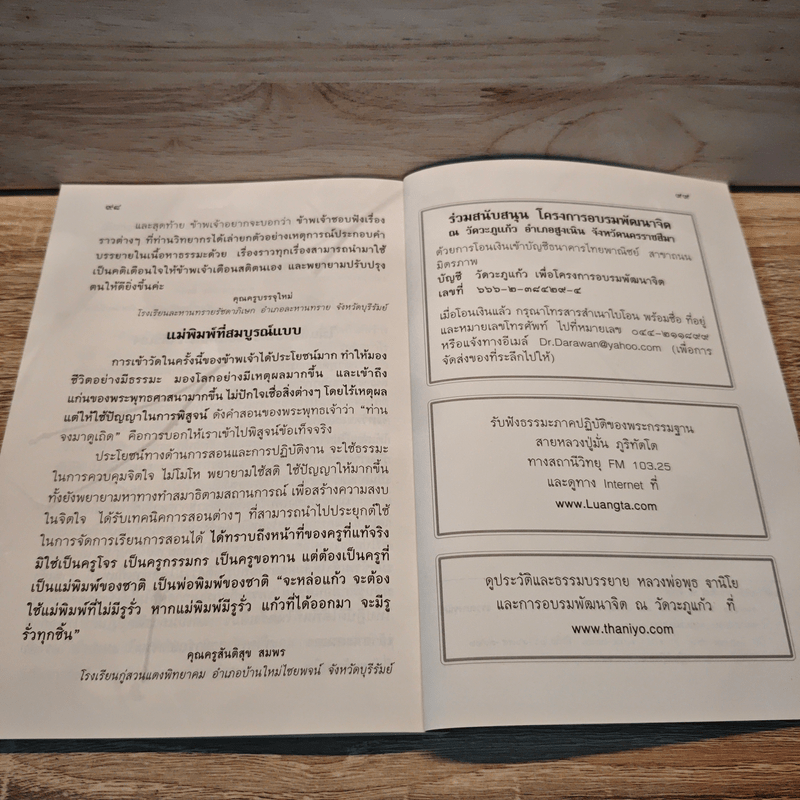 ๙๘
และสุดท้าย ข้าพเจ้าอยากจะบอกว่า ข้าพเจ้าชอบฟังเรื่อง
ราวต่างๆ ที่ท่านวิทยากรได้เล่ายกตัวอย่างเหตุการณ์ประกอบคำ
บรรยายในเนื้อหาธรรมะด้วย เรื่องราวทุกเรื่องสามารถนำมาใช้
เป็นคติเตือนใจให้ข้าพเจ้าเตือนสติตนเอง และพยายามปรับปรุง
ตนให้ดียิ่งขึ้นค่ะ
คุณครูบรรจุใหม่
โรงเรียนละหานทรายรัชดาภิเษก อำเภอละหานทราย จังหวัดบุรีรัมย์
แม่พิมพ์ที่สมบูรณ์แบบ
การเข้าวัดในครั้งนี้ของข้าพเจ้าได้ประโยชน์มาก ทำให้มอง
ชีวิตอย่างมีธรรมะ มองโลกอย่างมีเหตุผลมากขึ้น และเข้าถึง
แก่นของพระพุทธศาสนามากขึ้น ไม่ปักใจเชื่อสิ่งต่างๆ โดยไร้เหตุผล
แต่ให้ใช้ปัญญาในการพิสูจน์ ดังคำสอนของพระพุทธเจ้าว่า “ท่าน
จงมาดูเถิด” คือการบอกให้เราเข้าไปพิสูจน์ข้อเท็จจริง
ประโยชน์ทางด้านการสอนและการปฏิบัติงาน จะใช้ธรรมะ
ในการควบคุมจิตใจ ไม่โมโห พยายามใช้สติ ใช้ปัญญาให้มากขึ้น
ทั้งยังพยายามหาทางทำสมาธิตามสถานการณ์ เพื่อสร้างความสงบ
ในจิตใจ ได้รับเทคนิคการสอนต่างๆ ที่สามารถนำไปประยุกต์ใช้
ในการจัดการเรียนการสอนได้ ได้ทราบถึงหน้าที่ของครูที่แท้จริง
มิใช่เป็นครูโจร เป็นครูกรรมกร เป็นครูขอทาน แต่ต้องเป็นครูที่
เป็นแม่พิมพ์ของชาติ เป็นพ่อพิมพ์ของชาติ “จะหล่อแก้ว จะต้อง
ใช้แม่พิมพ์ที่ไม่มีรูรั่ว หากแม่พิมพ์มีรูรั่ว แก้วที่ได้ออกมา จะมีรู
รั่วทุกชิ้น”
คุณครูสันติสุข สมพร
โรงเรียนกู่สวนแตงพิทยาคม อำเภอบ้านใหม่ไชยพจน์ จังหวัดบุรีรัมย์
๙๙
ร่วมสนับสนุน โครงการอบรมพัฒนาจิต
ณ วัดวะภูแก้ว อำเภอสูงเนิน จังหวัดนครราชสีมา
ด้วยการโอนเงินเข้าบัญชีธนาคารไทยพาณิชย์ สาขาถนน
มิตรภาพ
บัญชี วัดวะภูแก้ว เพื่อโครงการอบรมพัฒนาจิต
เลขที่ ๖๖๖-๒-๓๘๔๒๙-๔
เมื่อโอนเงินแล้ว กรุณาโทรสารสำเนาใบโอน พร้อมชื่อ ที่อยู่
และหมายเลขโทรศัพท์ ไปที่หมายเลข ๐๔๔-๒๑๑๘๙๙
หรือแจ้งทางอีเมล์ Dr.Darawan@yahoo.com (เพื่อการ
จัดส่งของที่ระลึกไปให้)
รับฟังธรรมะภาคปฏิบัติของพระกรรมฐาน
สายหลวงปู่มั่น ภูริทัตโต
ทางสถานีวิทยุ FM 103.25
และดูทาง Internet ที่
www.Luangta.com
ดูประวัติและธรรมบรรยาย หลวงพ่อพุธ ฐานิโย
และการอบรมพัฒนาจิต ณ วัดวะภูแก้ว ที่
www.thaniyo.com